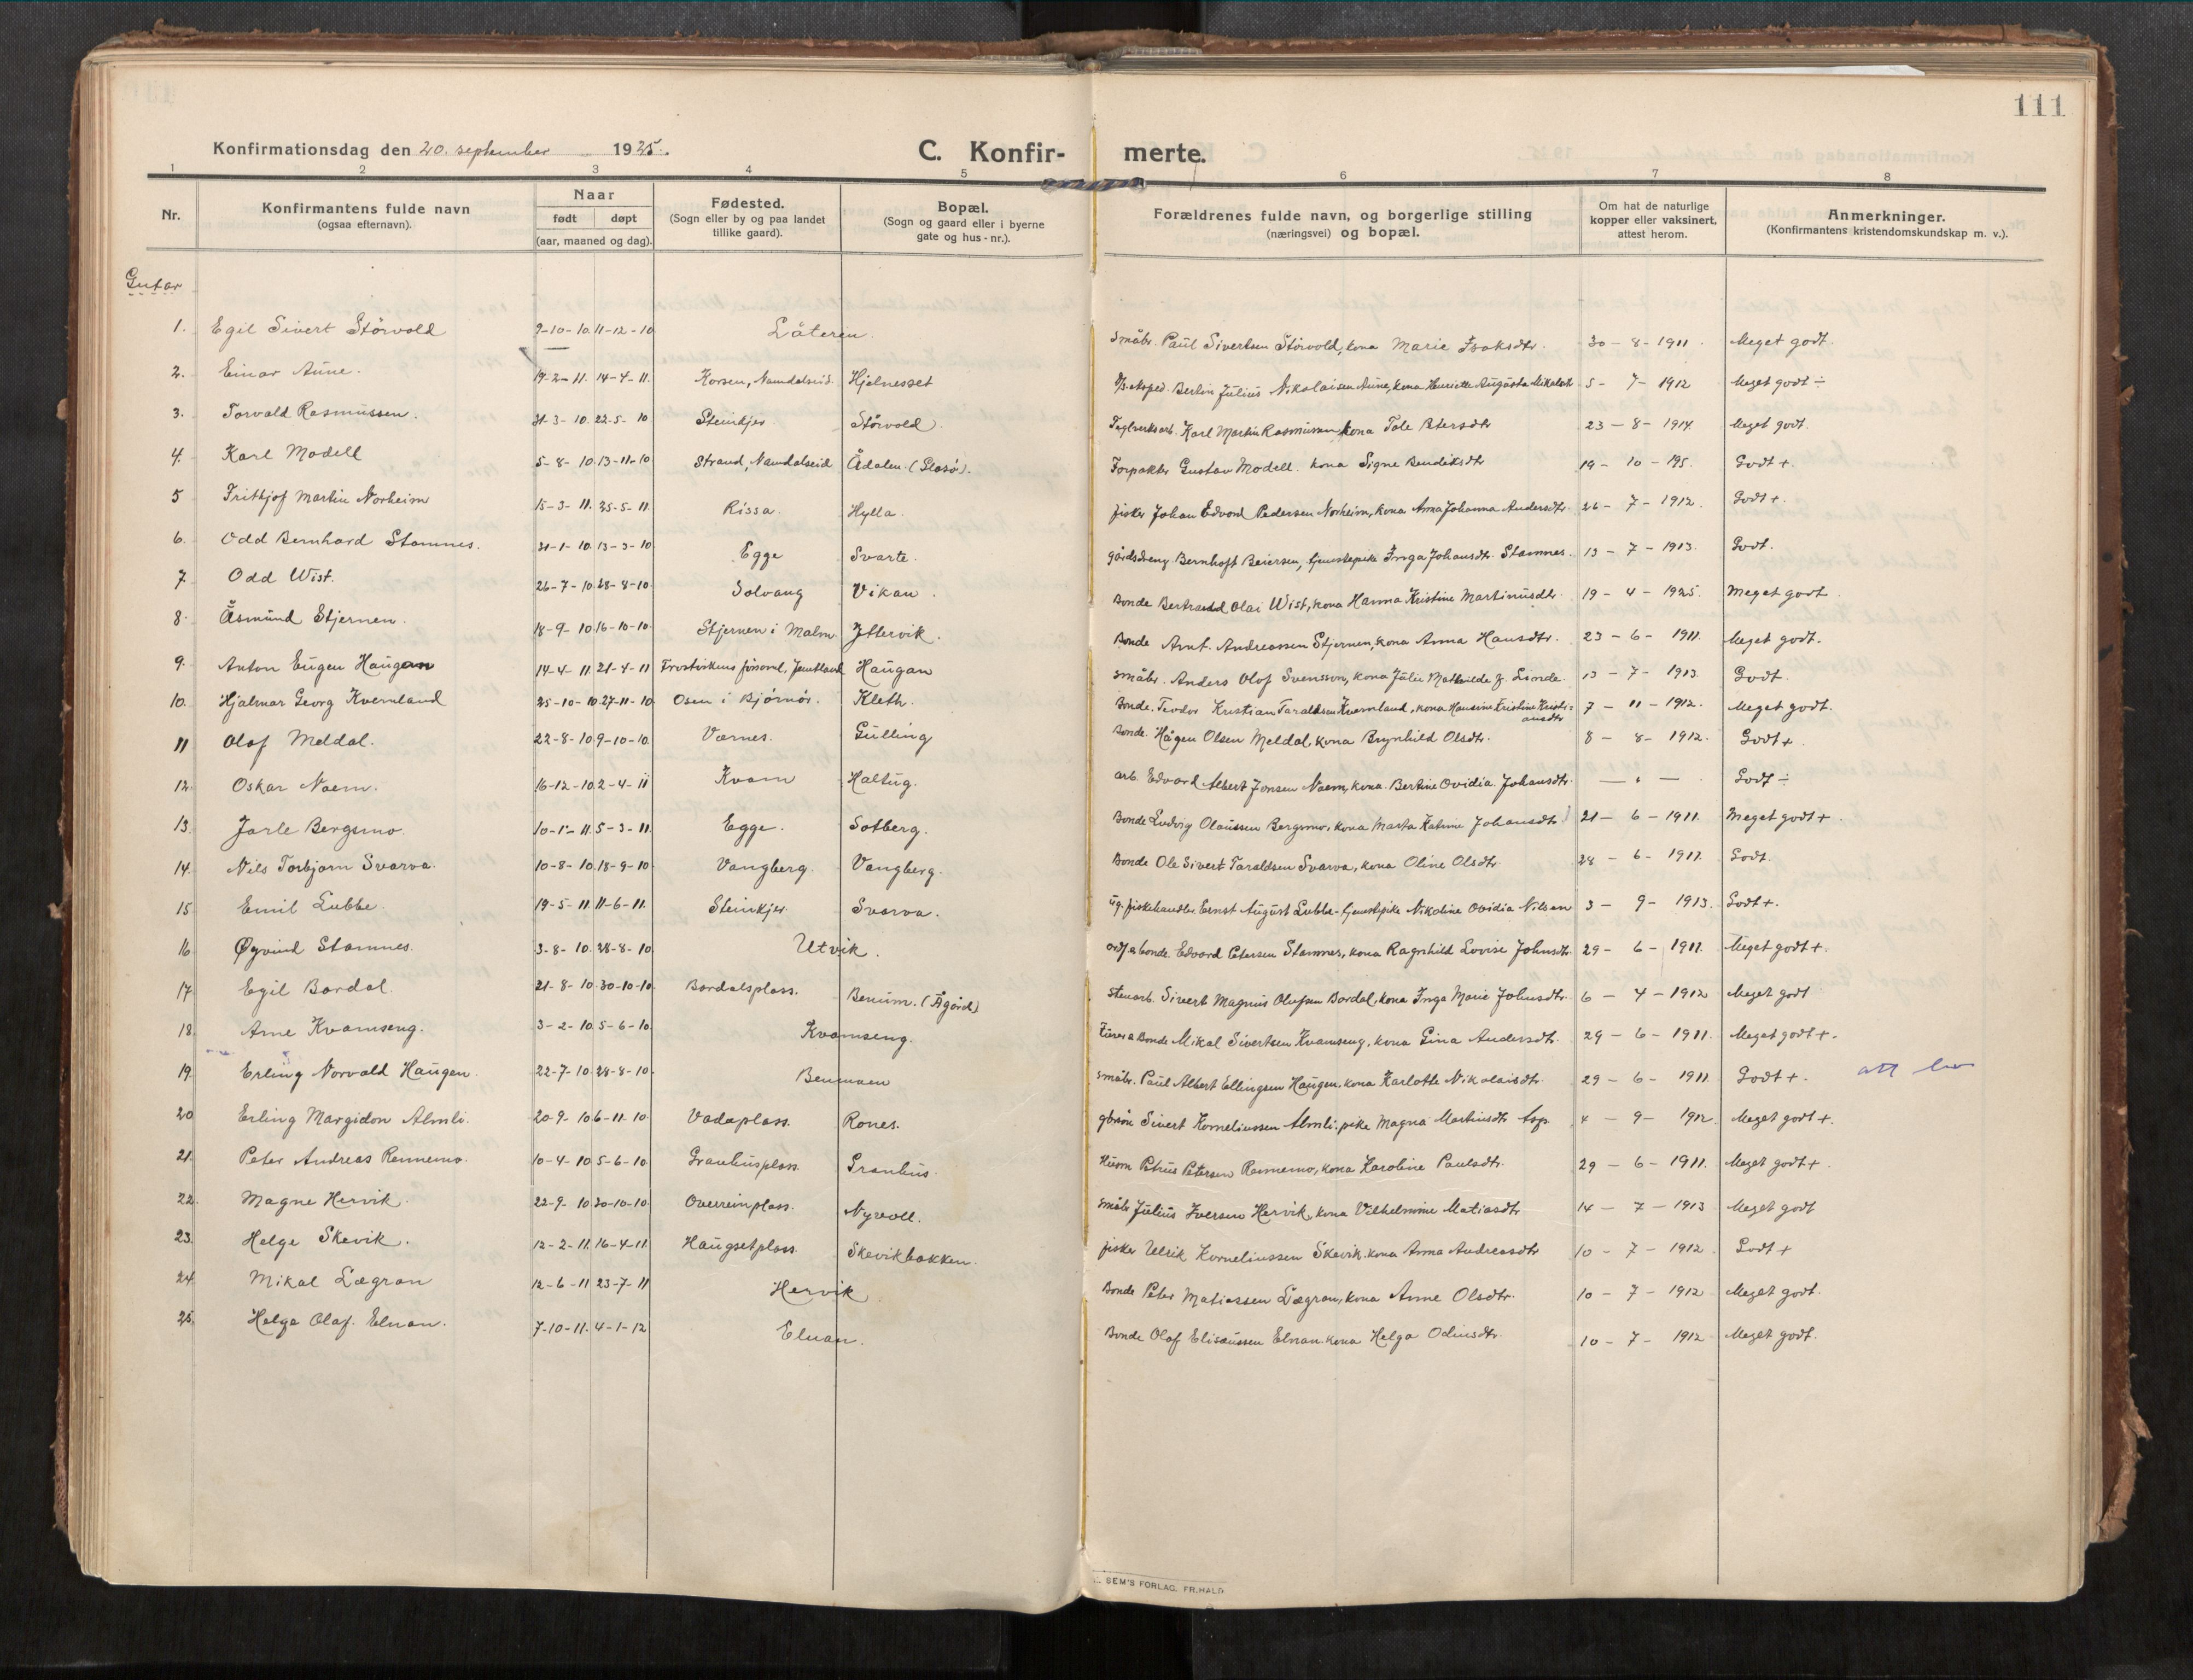 111
Konfirmationsdag den 20. september 1925.
C. Konfir- merte.
1 2 3 4 5 6 7 8
Nr.
Konfirmantens fulde navn
(ogsaa efternavn).
Naar
født døpt
(aar, maaned og dag).
Fødested.
(Sogn eller by og paa landet
tillike gaard).
Bopæl.
(Sogn og gaard eller i byerne
gate og hus-nr.).
Forældrenes fulde navn, og borgerlige stilling
(næringsvei) og bopæl.
Om hat de naturlige
kopper eller vaksinert,
attest herom.
Anmerkninger.
(Konfirmantens kristendomskundskap m. v.).
Gutar
1. Egil Sivert Störvold 9-10-10. 11-12-10 Låteren. Småbr. Paul Sivertsen Störvold, kona Marie Isaksdtr. 30-8-1911. Meget godt.
2. Einar Aune. 19-2-11. 14-4-11. Korsen, Namdalseid. Hjelnesset Berlin Julius Nikolaisen Aune, kona Henriette Augusta 5-7-1912 Meget godt ÷
3. Torvald Rasmussen. 31-3-10. 22-5-10 Steinkjer Störvold. Teglverksarb. Karl Martin Rasmussen, kona Tale Petersdtr 23-8-1914. Meget godt.
4. Karl Modell 5-8-10. 13-11-10 Strand, Namdalseid Ådalen. (Stosö). Forpakter Gustav Modell. kona Signe Bendiksdtr 19-10-195. Godt +.
5 Frithjof Martin Norheim 15-3-11. 25-5-11. Rissa. Hylla. fisker Johan Edvard Pedersen Norheim, kona Anna Johanna Andersdtr. 26-7-1912. Godt +.
6. Odd Bernhard Stamnes. 21-1-10. 13-3-10 Egge Svarte. gårdsdreng Bernhoft Beiersen, tjenestepike Inga Johansdtr. Stamnes. 13-7-1913. Godt.
7. Odd Wist. 26-7-10. 28-8-10. Solvang Vikan. Bonde Bertrand Olai Wist, kona Hanna Kristine Martinusdtr. 19-4-1925. Meget godt
8. Åsmund Stjernen. 18-9-10. 16-10-10. Stjernen i Malm. Yttervik. Bonde Arnt. Andreassen Stjernen, kona Anna Hansdtr. 23-6-1911. Meget godt.
9. Anton Eugen Haugan 14-4-11. 21-4-11 Frostvikens församl. Jemtland Haugan småbr. Anders Olof Svensson, kona Julie Mathilde f. Linde. 13-7-1913. Godt.
10. Hjalmar Georg Kvernland 25-10-10. 27-11-10. Osen i Bjørnør. Kleth. Bonde. Teodor Kristian Taraldsen Kvernland, kona Hansine Kristine Kristi-
ansdtr 7-11-1912. Meget godt.
11 Olaf Meldal. 22-8-10. 9-10-10. Værnes. Gulling Bonde. Hågen Olsen Meldal, kona Brynhild Olsdtr. 8-8-1912. Godt +
12. Oskar Naem. 16-12-10. 2-4-11 Kvam Haltug. arb. Edvard Albert Jonsen Naem, kona. Bertine Ovidia. Johansdtr. — " — . Godt ÷
13. Jarle Bergsmo. 10-1-11. 5-3-11. Egge. Sotberg. Bonde Ludvig Olaussen Bergsmo, kona Marta Katrine Johansdtr. 21-6-1911. Meget godt +.
14. Nils Torbjørn Svarva. 10-8-10. 18-9-10. Vangberg. Vangberg. Bonde Ole Sivert Taraldsen Svarva, kona Oline Olsdtr. 28-6-1911. Godt.
15 Emil Lubbe. 19-5-11. 11-6-11. Steinkjer. Svarva. ug. fiskehandler Ernst August Lubbe - tjenestepike Nikoline Ovidia Nilsen 3-9-1913. Godt +.
16 Øyvind Stamnes. 3-8-10. 28-8-10. Utvik. bonde. Edvard Petersen Stamnes, kona Ragnhild Lovise Johnsdtr. 29-6-1911. Meget godt +.
17 Egil Bardal. 21-8-10. 30-10-10. Bardalsplass. Benum. (Ågård) stenarb. Sivert Magnus Olufsen Bardal, kona Inga Marie Johnsdtr. 6-4-1912 Meget godt
18. Arne Kvamseng. 3-2-10. 5-6-10. Kvamseng. Bonde Mikal Sivertsen Kvamseng, kona Gina Andersdtr. 29-6-1911. Meget godt +.
19. Erling Norvald Haugen. 22-7-10. 28-8-10. Benmam småbr. Paul Albert Ellingsen Haugen, kona Karlotte Nikolaisdtr. 29-6-1911. Godt +.
20 Erling Margidon Almli. 20-9-10. 6-11-10. Vadaplass. Rones. gbrsön Sivert Korneliussen Almli. pike Magna Martinsdtr Asp. 4-9-1912. Meget godt +.
21. Peter Andreas Rennemo. 10-4-10. 5-6-10. Granhusplass. Granhus. Husm Petrus Petersen Rennemo, kona Karoline Paulsdtr. 29-6-1911. Meget godt +.
22. Magne Hervik. 22-9-10. 30-10-10. Overreinplass. Nyvoll. småbr Julius Iversen Hervik, kona Vilhelmine Matiasdtr 14-7-1913 Meget godt
23. Helge Skevik. 12-2-11. 16-4-11. Haugsetplass. Skevikbakken. fisker Ulrik Korneliussen Skevik. kona Anna Andreasdtr 10-7-1912. Godt +
24. Mikal Lægran 12-6-11 23-7-11 Hervik Bonde Peter Matiassen Lægran, kona Anne Olsdtr. 10-7-1912 Meget godt.
25. Helge Olaf. Elnan. 7-10-11. 4-1-12 Elnan. Bonde Olaf Elisæussen Elnan. kona Helga Odinsdtr. 10-7-1912 Meget godt.
SEM'S FORLAG, FR.HALD